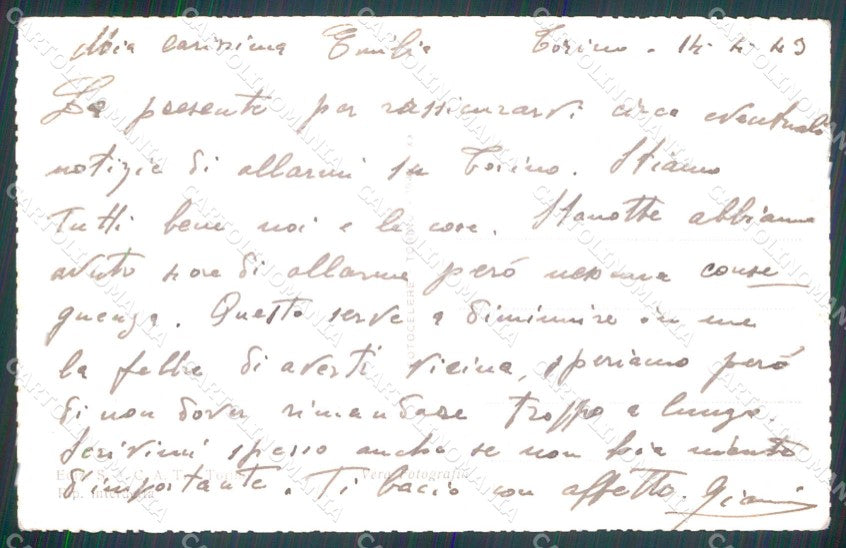 Mia carissima Emilia Torino - 14-4-43
La presente per rassicurarvi circa eventuali
notizie di allarmi su Torino. Stiamo
Tutti bene noi e le cose. Stanotte abbiamo
avuto ore di allarme però nessuna conse
guenza. Questo serve a diminuire in me
la febbre di averti vicina, speriamo però
di non dover rimandare troppo a lungo.
Scrivimi spesso anche se non hai niente
d'importante. Ti bacio con affetto. Gianni
FOTOCELERE TORINO
Vera Fotografia
Rip. Interdetta
CARTOLINOMANIA